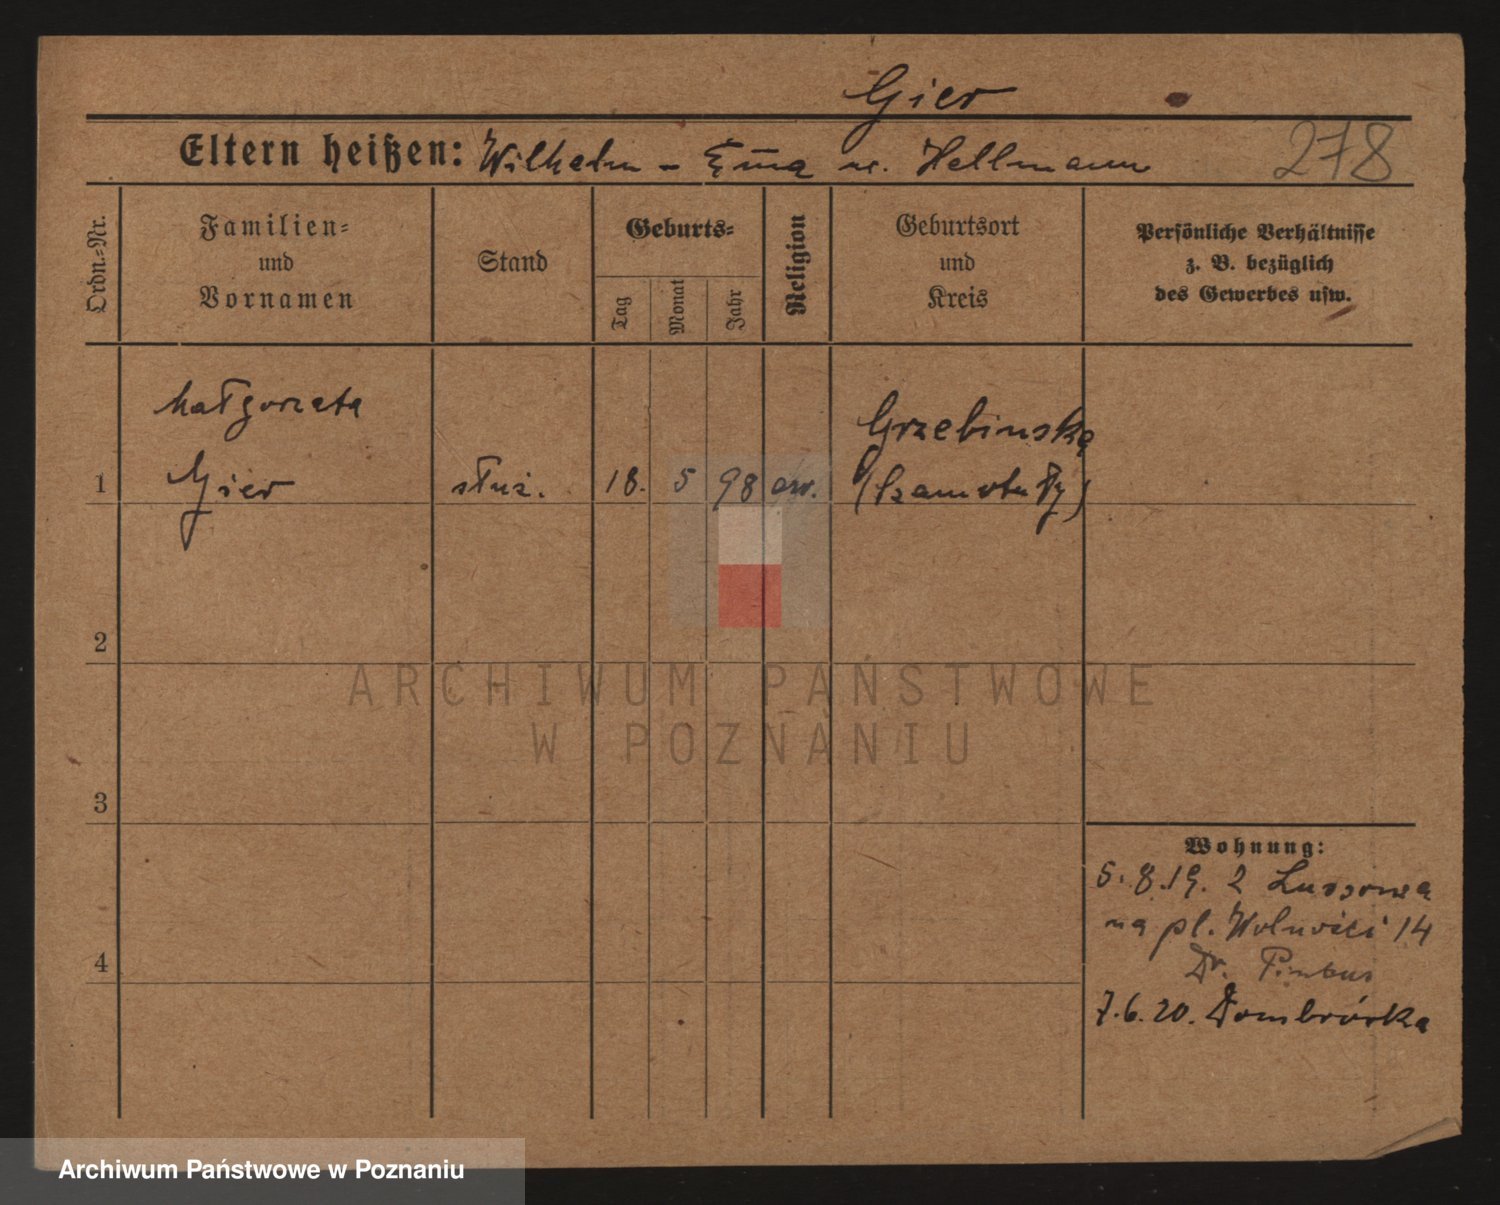 Gier
Eltern heißen: Wilhelm - Em̄a u. Hellmann 278
Ordn.-Nr.
Familien-
und
Vornamen
Stand
Geburts-
Tag
Monat
Jahr
Religion
Geburtsort
und
Kreis
Persönliche Verhältnisse
z. B. bezüglich
des Gewerbes usw.
Małgorzata
Gier
1 służ. 18. 5 98 ew.
Grzebinsko
(Szamotuły)
2
3
4
Wohnung:
5.8.19. z Lussowa
na pl. Wolności 14
Dr. Pinkus
7.6.20. Dombrówka
ARCHIWUM PAŃSTWOWE
W POZNANIU
Archiwum Państwowe w Poznaniu